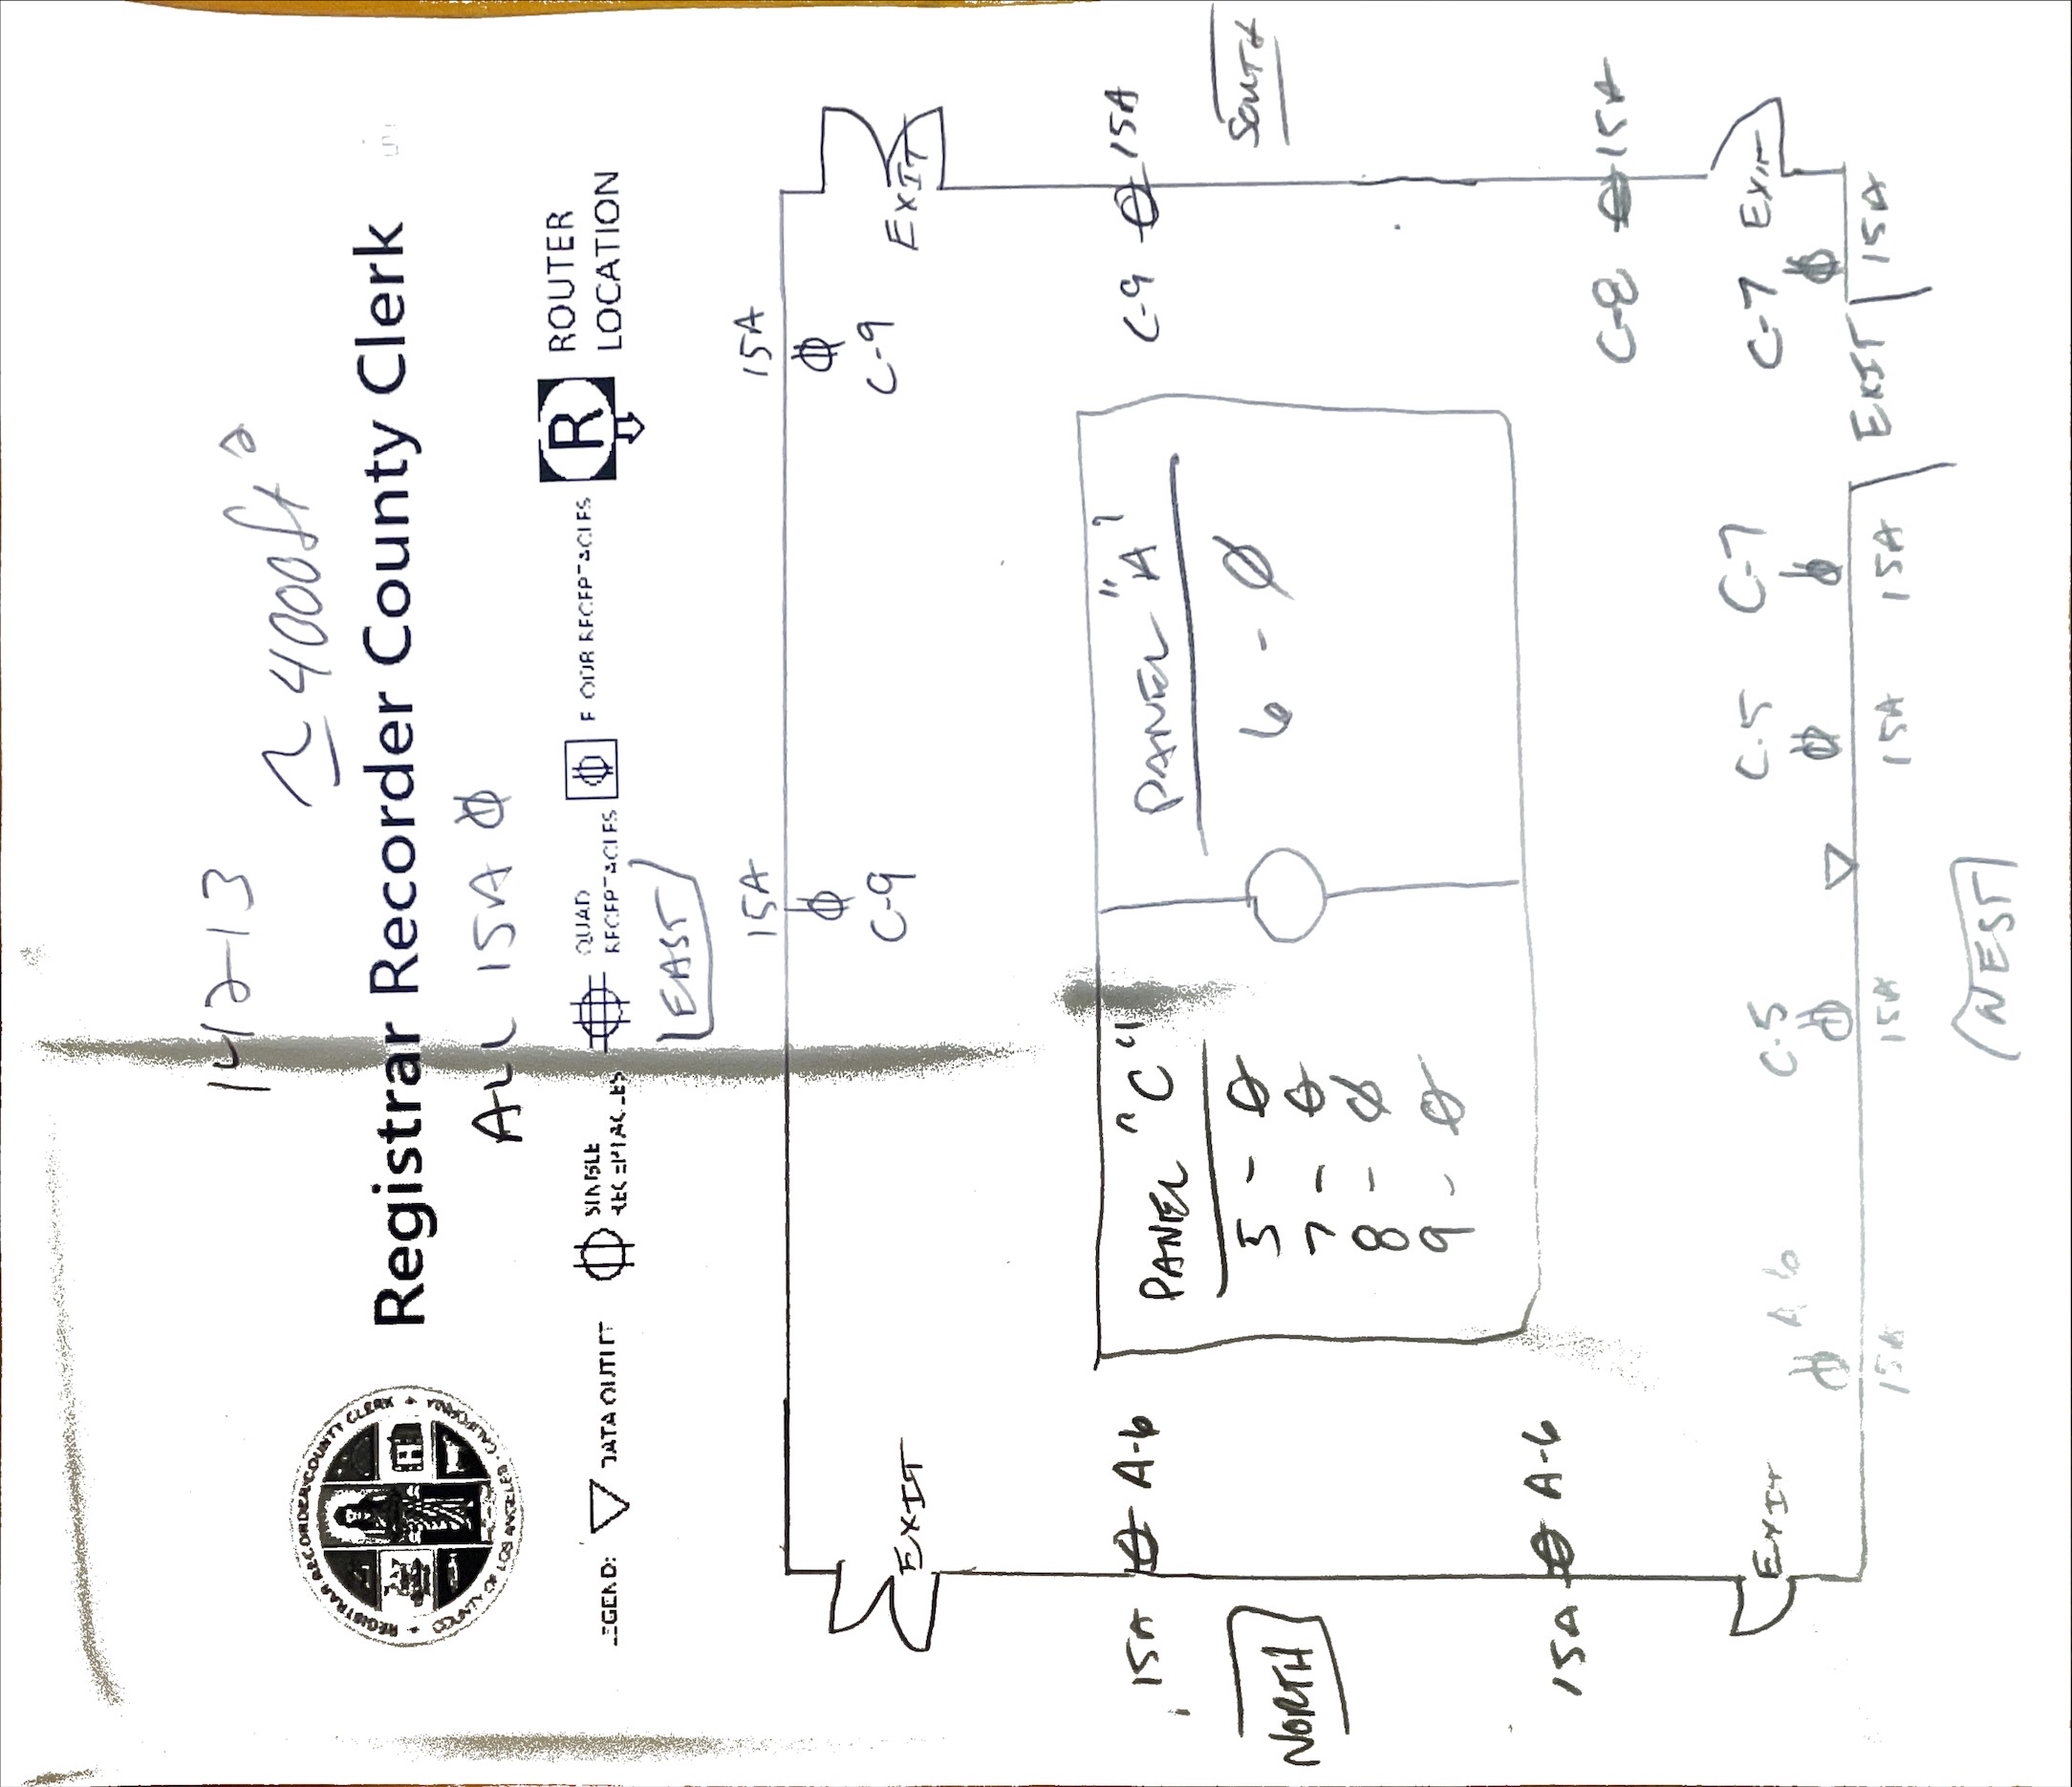 1412-13
~ 4000ft²
Registrar Recorder County Clerk
ALL 15A
LEGEND:
DATA OUTLET
SINGLE
RECEPTACLES
QUAD
RECEPTACLES
FOUR RECEPTACLES
R
ROUTER
LOCATION
REGISTRAR RECORDER/COUNTY CLERK
COUNTY OF LOS ANGELES • CALIFORNIA
EAST
15A
15A
C-9
C-9
EXIT
EXIT
15A
A-6
C-9
15A
NORTH
SOUTH
PANEL "C"
5 - Ø
7 - Ø
8 - Ø
9 - Ø
PANEL "A"
6 - Ø
15A
A-6
C-8
15A
EXIT
A-6
C-5
C-5
C-7
C-7
EXIT
15A
15A
15A
15A
EXIT
15A
WEST